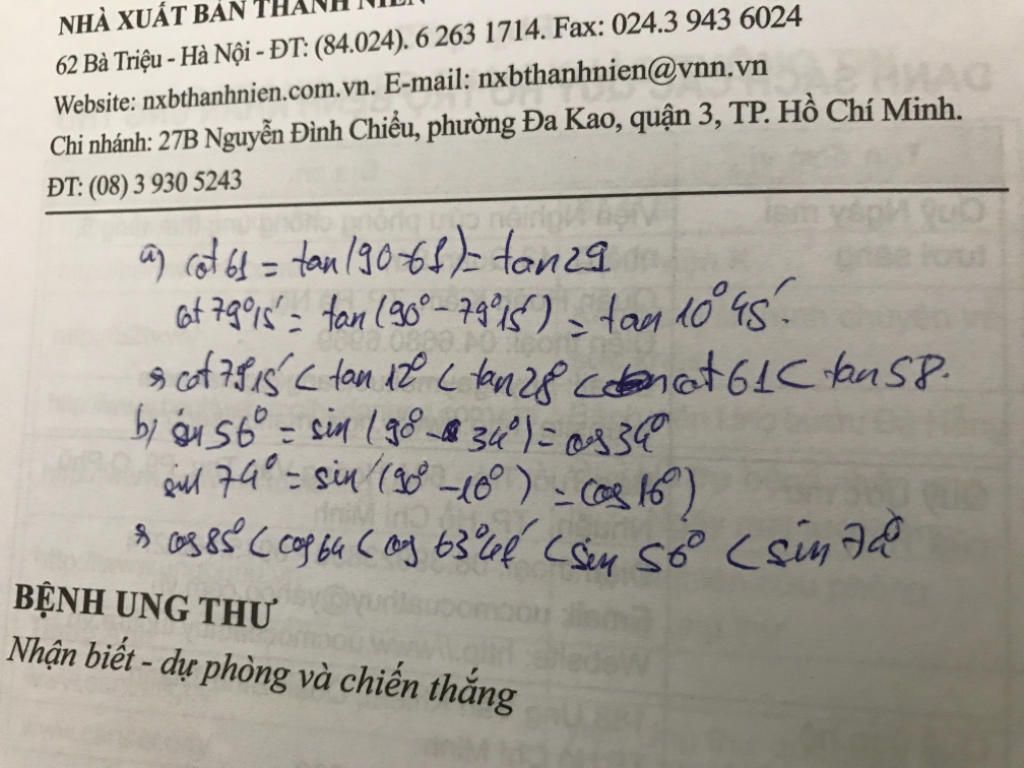 NHÀ XUẤT BẢN THANH NIÊN
62 Bà Triệu - Hà Nội - ĐT: (84.024). 6 263 1714. Fax: 024.3 943 6024
Website: nxbthanhnien.com.vn. E-mail: nxbthanhnien@vnn.vn
Chi nhánh: 27B Nguyễn Đình Chiểu, phường Đa Kao, quận 3, TP. Hồ Chí Minh.
ĐT: (08) 3 930 5243
a) cot 61 = tan(90-61) = tan 29
cot 79°15' = tan(90° - 79°15') = tan 10°45'.
cot 79°15' < tan 12° < tan 28° < cot 61 < tan 58.
b) sin 56° = sin(90° - 34°) = cos 34°
sin 74° = sin(90° - 16°) = cos 16°)
cos 85° < cos 64 < cos 63° < sin 56° < sin 74°
BỆNH UNG THƯ
Nhận biết - dự phòng và chiến thắng